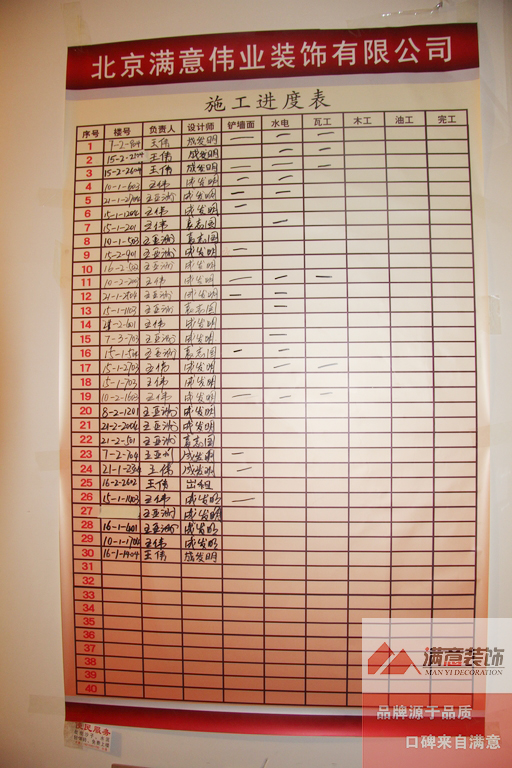 北京满意伟业装饰有限公司
施工进度表
序号 楼号 负责人 设计师 铲墙面 水电 瓦工 木工 油工 完工
1 7-2-904 王伟 成发明 — — —
2 15-2-2704 王伟 成发明 — —
3 15-2-2604 王伟 成发明 — — —
4 10-1-603 王伟 成发明 — —
5 21-1-2704 王亚洲 成发明 — —
6 15-1-1206 王伟 成发明 —
7 15-1-201 王伟 袁志国 —
8 10-1-503 王亚洲 袁志国
9 15-2-401 王亚洲 成发明 —
10 16-2-502 王亚洲 成发明
11 10-2-203 王伟 成发明 — — —
12 21-1-2504 王亚洲 成发明 — —
13 15-1-1103 王亚洲 袁志国 —
14 21-2-1601 王伟 成发明
15 7-3-703 王亚洲 成发明 —
16 15-1-504 王亚洲 袁志国 — —
17 15-1-2703 王伟 成发明 — —
18 15-1-703 王伟 成发明
19 10-2-1603 王伟 成发明 — — —
20 8-2-1201 王亚洲 成发明
21 21-2-2006 王亚洲 成发明
22 21-2-501 王亚洲 袁志国
23 7-2-704 王亚洲 成发明 —
24 21-1-2304 王伟 成发明 —
25 16-2-2602 王伟 出租
26 15-1-1003 王伟 成发明 —
27 王亚洲 成发明
28 16-1-601 王亚洲 成发明
29 10-1-1706 王伟 成发明
30 16-1-1404 王伟 成发明
31
32
33
34
35
36
37
38
39
40
便民服务
满意装饰
MAN YI DECORATION
品牌源于品质
口碑来自满意